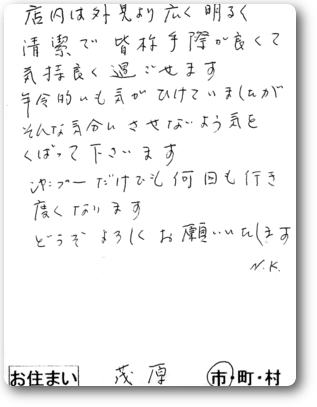 店内は外見より広く明るく
清潔で皆様手際が良くて
気持良く過ごせます
年令的にも気がひけていましたが
そんな気分にさせないよう気を
くばって下さいます
シャンプーだけでも何回も行き
度くなります
どうぞよろしくお願いいたします
N.K.
お住まい 茂原 市・町・村